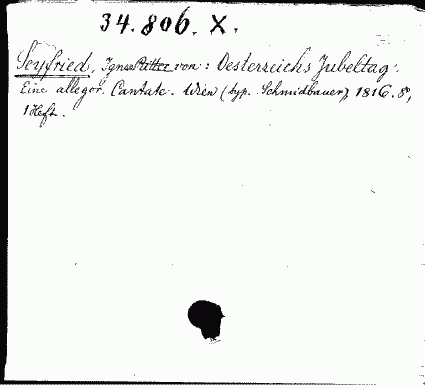 34.806. X.
Seyfried, Ignaz Ritter von: Oesterreichs Jubeltag.
Eine allegor. Cantate. Wien (typ. Schmidbauer), 1816. 8°,
1 Heft.